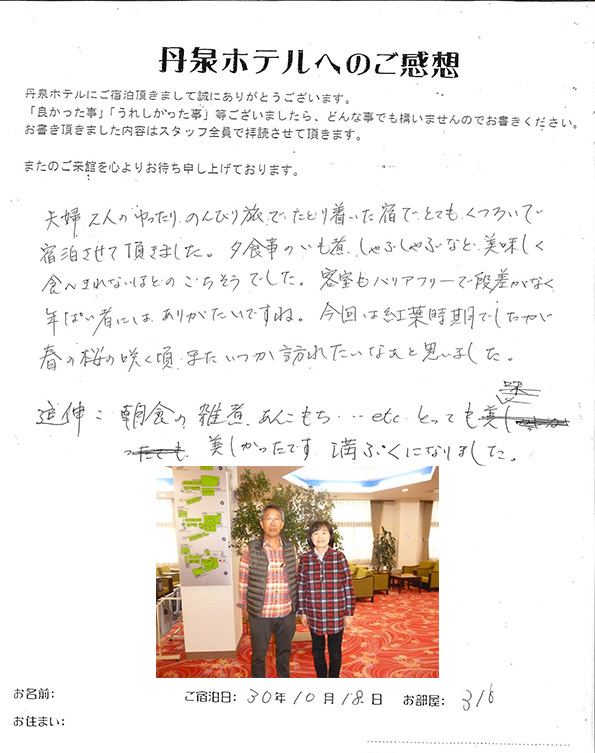 丹泉ホテルへのご感想
丹泉ホテルにご宿泊頂きまして誠にありがとうございます。
「良かった事」「うれしかった事」等ございましたら、どんな事でも構いませんのでお書きください。
お書き頂きました内容はスタッフ全員で拝読させて頂きます。
またのご来館を心よりお待ち申し上げております。
夫婦2人のゆったり、のんびり旅でたどり着いた宿で、とてもくつろいで
宿泊させて頂きました。夕食事のいも煮、しゃぶしゃぶなど、美味しく
食べきれないほどのごちそうでした。客室もバリアフリーで段差がなく
年ぱい者にはありがたいですね。今回は紅葉時期でしたが
春の桜の咲く頃、またいつか訪れたいなぁと思いました。
追伸：朝食の雑煮、あんこもち・・・etc とっても
美しかったです。満ぷくになりました。
お名前：
ご宿泊日：30年10月18日 お部屋：316
お住まい：